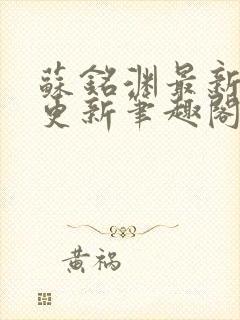 蘇銘淵最新
更新筆趣閣
黃禍